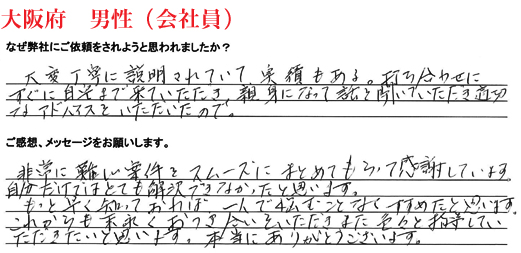 大阪府　男性（会社員）
なぜ弊社にご依頼をされようと思われましたか？
大変丁寧に説明されていて、実績もある。打ち合わせに
すぐに自宅まで来ていただき、親身になって話を聞いていただき適切
なアドバイスをいただいたので。
ご感想、メッセージをお願いします。
非常に難しい案件をスムーズにまとめてもらって感謝しています。
自分だけではとても解決できなかったと思います。
もっと早く知っておれば一人で悩むことなくすすめたと思います。
これからも末永くおつき合いをいただきまた色々と指導してい
ただきたいと思います。本当にありがとうございます。